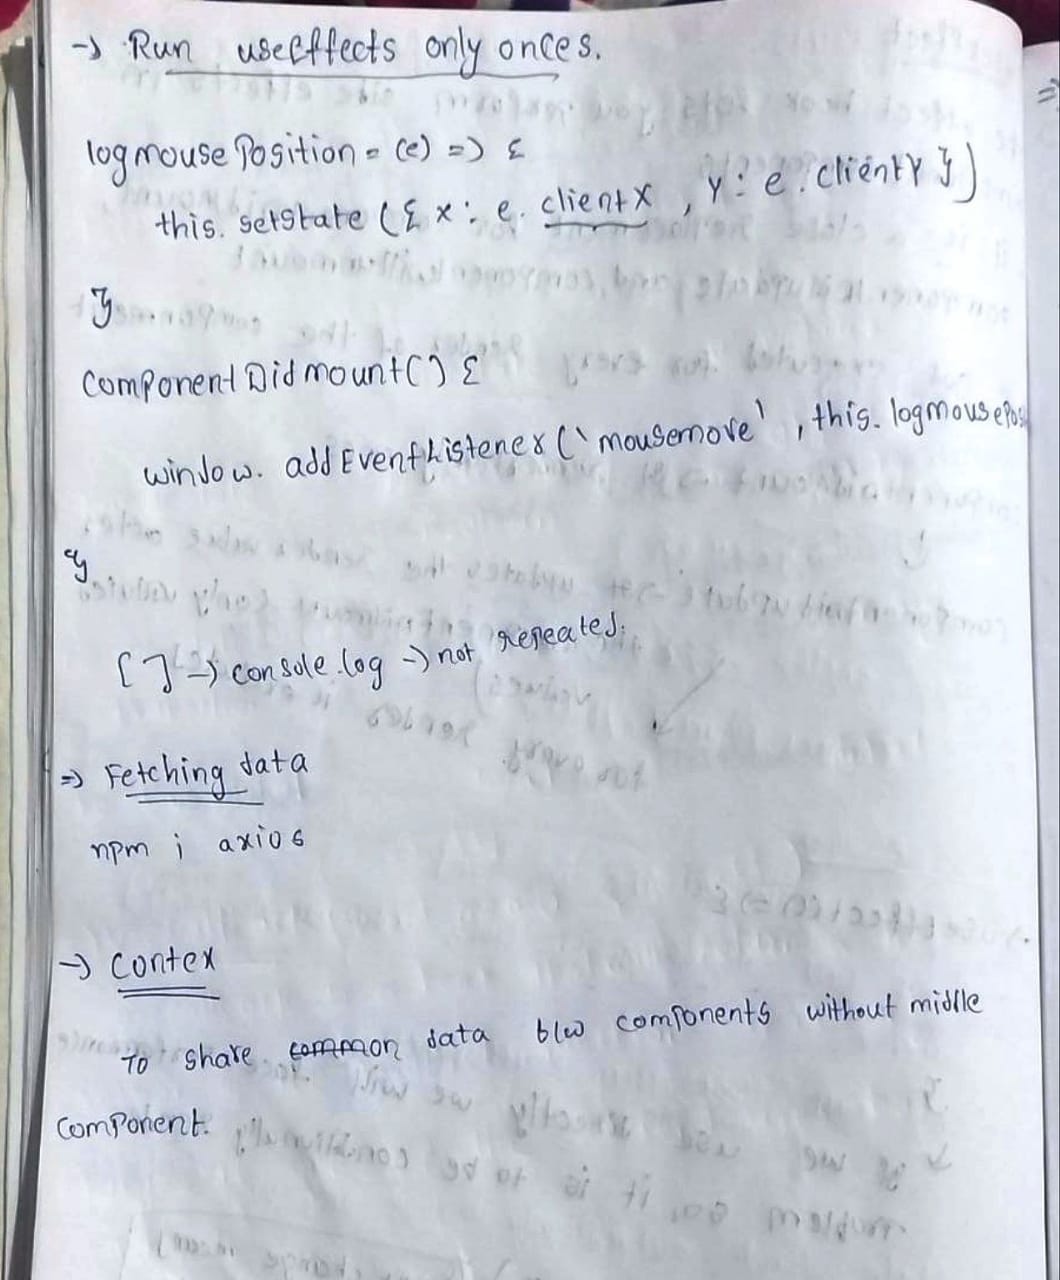 -> Run useEffects only onces.
logmousePosition = (e) => {
this. setState ({ x : e. clientX , Y : e. clientY })
}
ComponentDidmount() {
window. addEventListener ('mousemove' , this. logmousePos
}
[ ] -> console.log -> not repeated.
=> Fetching data
npm i axios
-> Contex
To share common data b/w components without middle
Component.